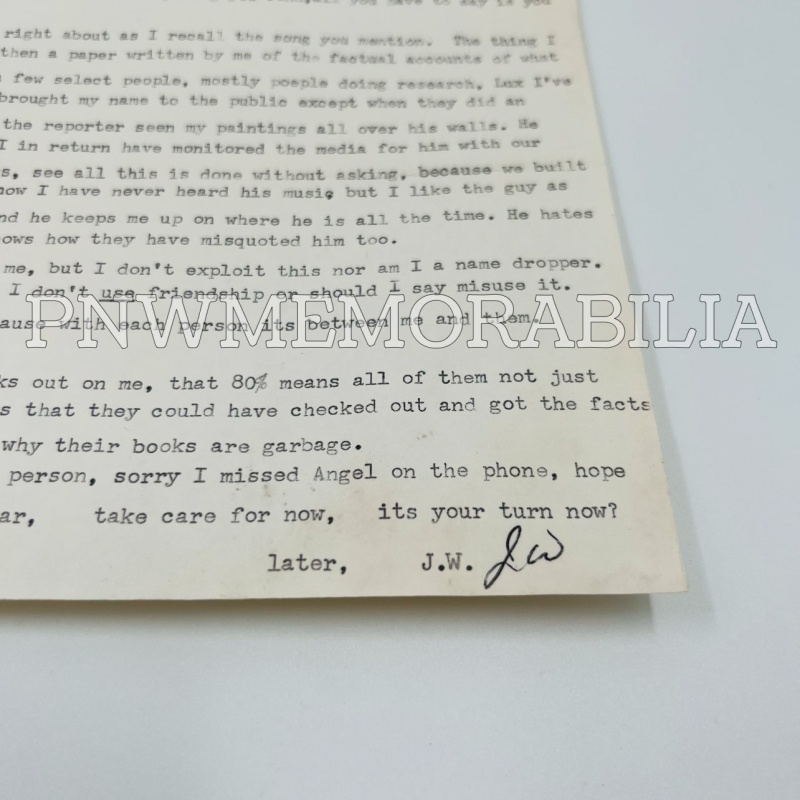 all you have to say is you
right about as I recall the song you mention. The thing I
then a paper written by me of the factual accounts of what
few select people, mostly poeple doing research, Lux I've
brought my name to the public except when they did an
the reporter seen my paintings all over his walls. He
I in return have monitored the media for him with our
s, see all this is done without asking, because we built
now I have never heard his music but I like the guy as
nd he keeps me up on where he is all the time. He hates
ows how they have misquoted him too.
me, but I don't exploit this nor am I a name dropper.
I don't use friendship or should I say misuse it.
PNWMEMORABILIA
ause with each person its between me and them.
ks out on me, that 80% means all of them not just
s that they could have checked out and got the facts
why their books are garbage.
person, sorry I missed Angel on the phone, hope
ar, take care for now, its your turn now?
later, J.W. JW